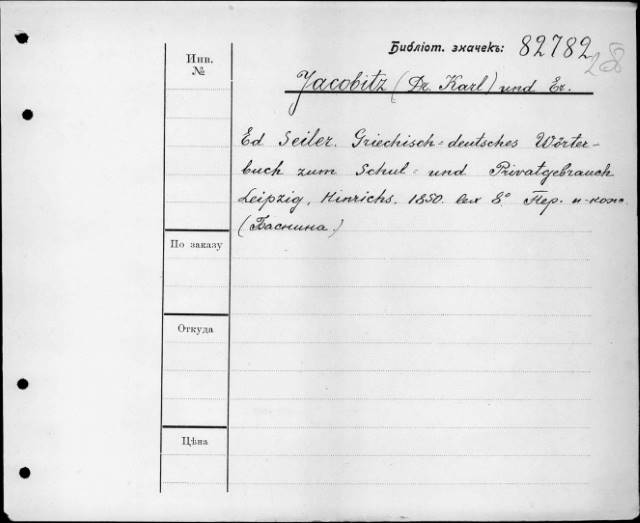 Библіот. значекъ: 82782
28
Инв.
№
Jacobitz (Dr. Karl) und Er.
Ed Seiler. Griechisch-deutsches Wörter-
buch zum Schul- und Privatgebrauch
Leipzig, Hinrichs. 1850. lex 8° Пер. п-кож.
(Баснина)
По заказу
Откуда
Цѣна